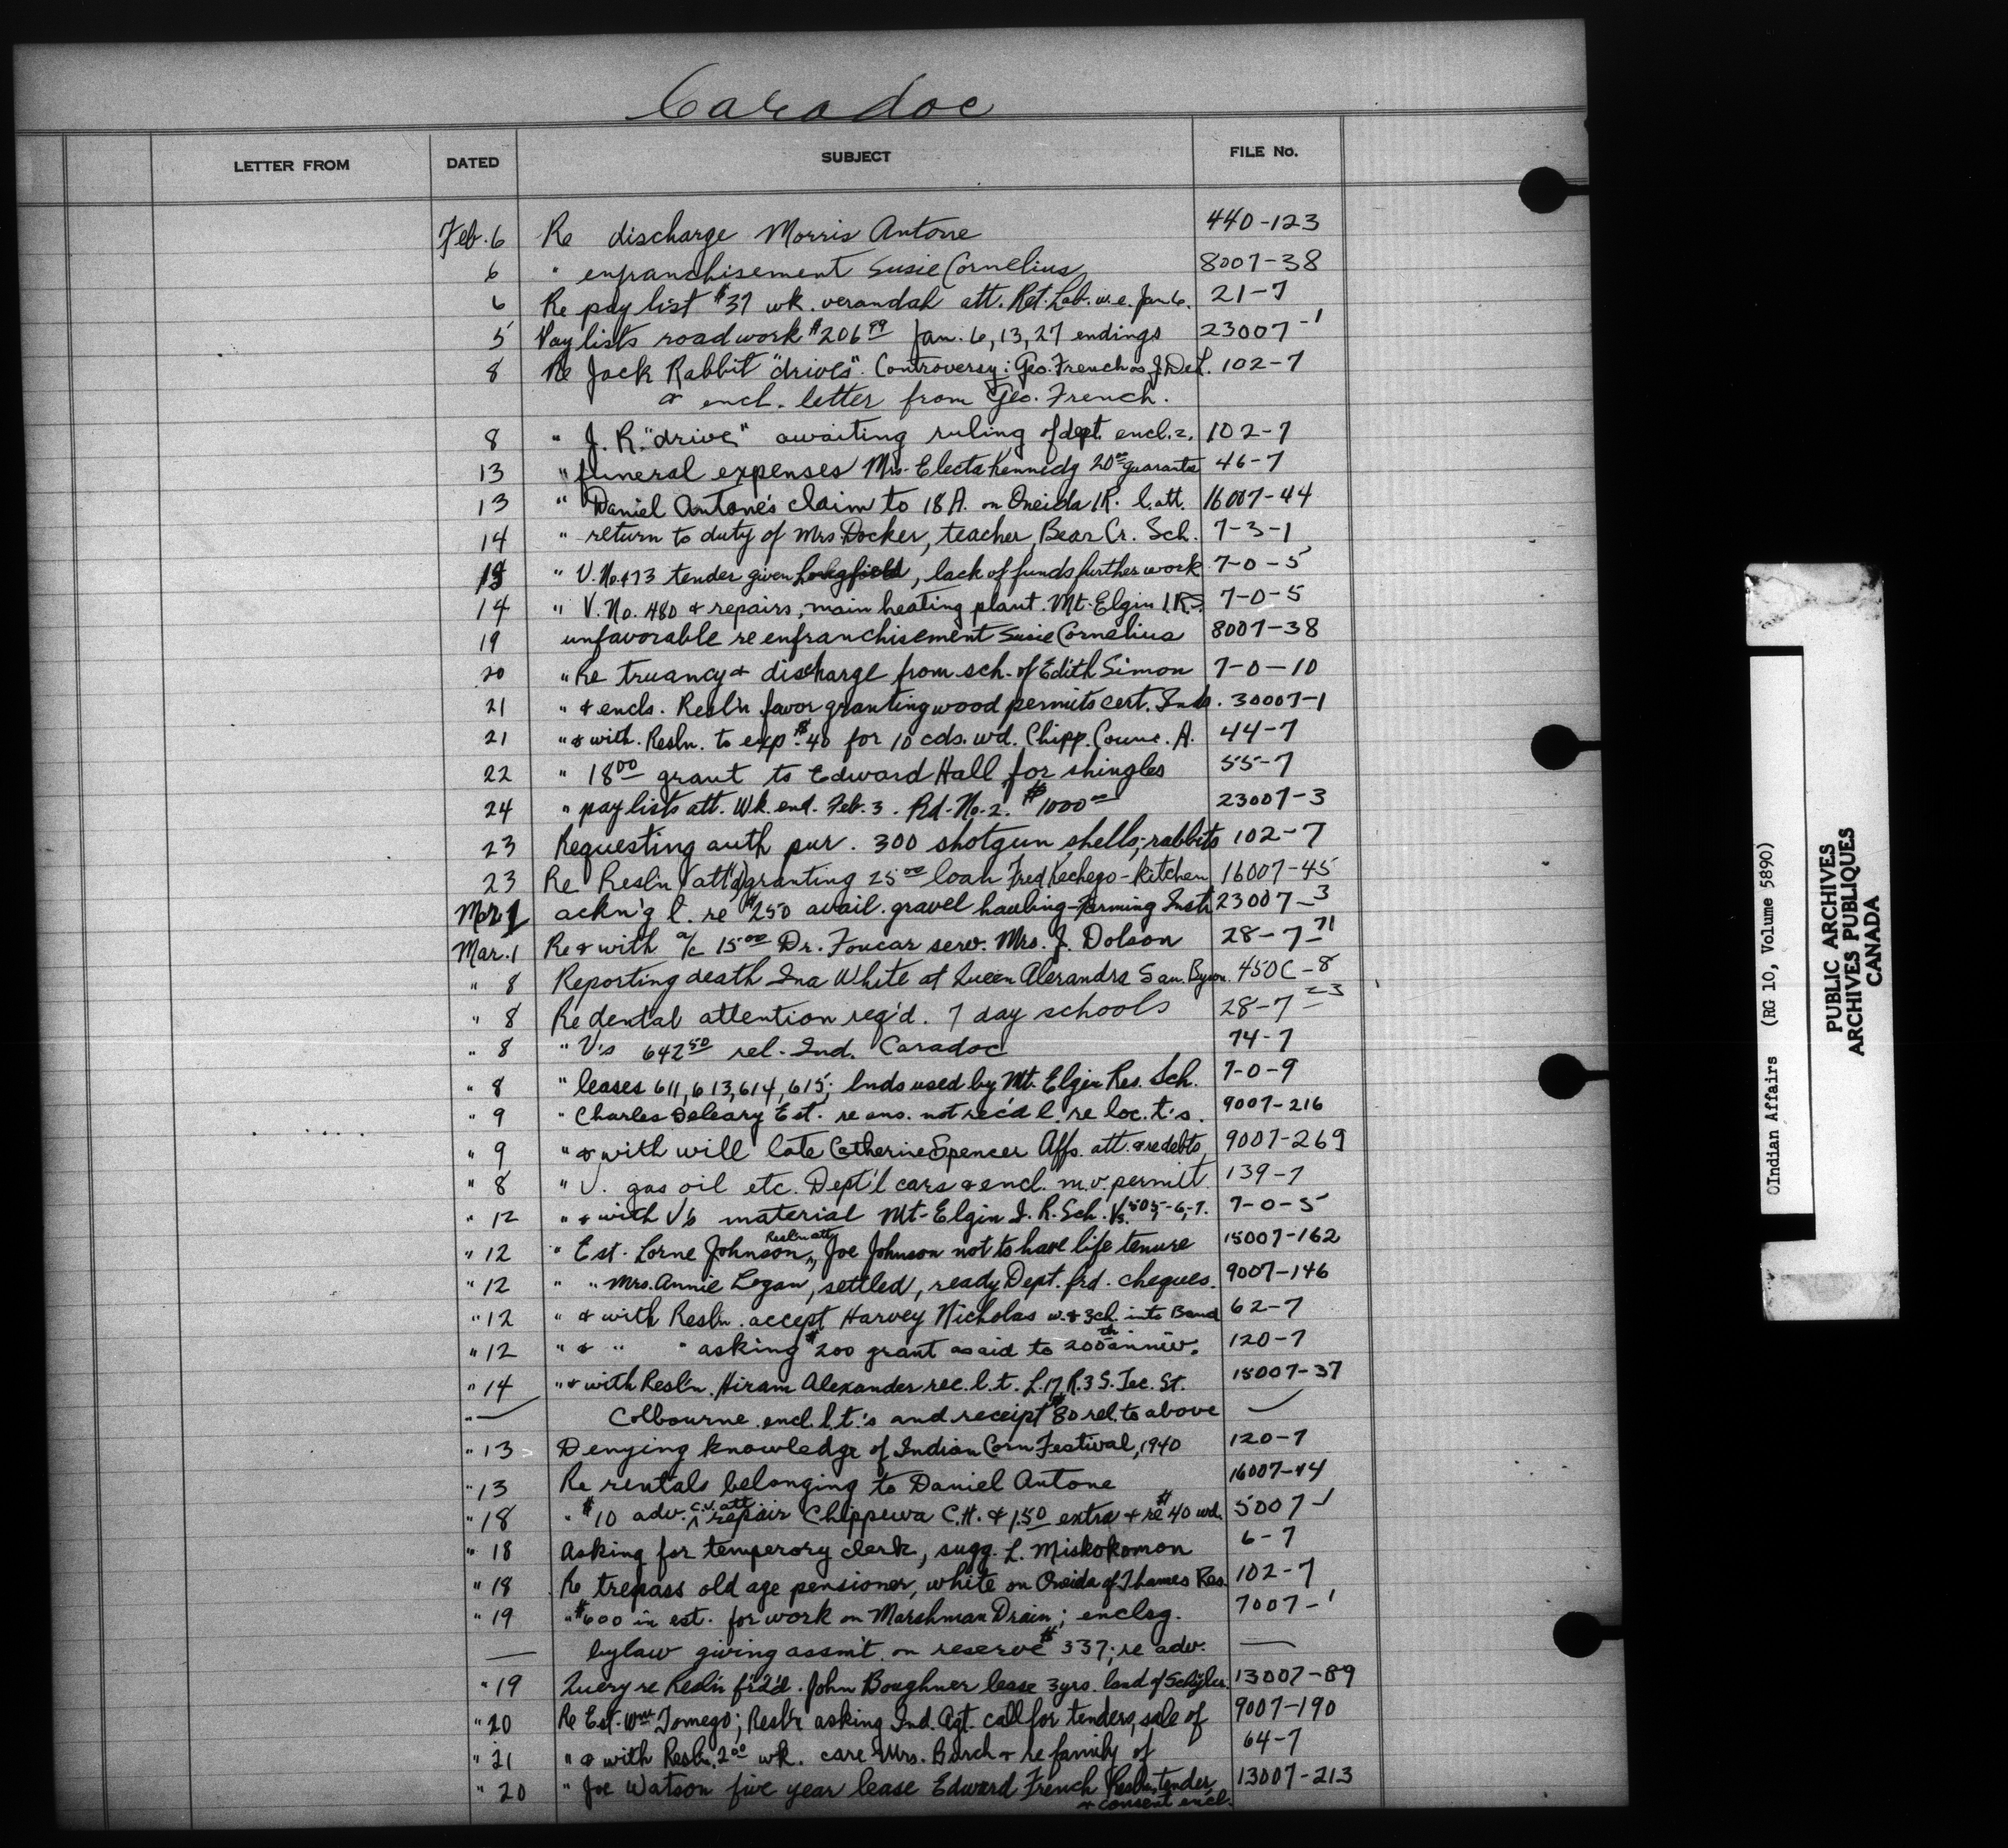 Caradoc
LETTER FROM DATED SUBJECT FILE No.
Feb. 6 Re discharge Morris Antone 440-123
6 " enfranchisement Susie Cornelius 8007-38
6 Re pay list $37 wk. verandah att. Ret. Lab. w.e. Jan 6. 21-7
5 Pay lists road work $206.99 Jan. 6, 13, 27 endings 23007-1
8 Re Jack Rabbit "drives". Controversy: Geo. French vs J. Del. 102-7
& encl. letter from Geo. French.
8 " J. R. "drive" awaiting ruling of dept. encl. 2. 102-7
13 " funeral expenses Mrs. Electa Kennedy 20.00 guarantee 46-7
13 " Daniel Antone's claim to 18 A. on Oneida I R. l. att. 16007-44
14 " return to duty of Mrs Docker, teacher, Bear Cr. Sch. 7-3-1
" V. No. 473 tender given Longfield, lack of funds further work 7-0-5
14 " V. No. 480 & repairs, main heating plant. Mt. Elgin I.R.S. 7-0-5
19 unfavorable re enfranchisement Susie Cornelius 8007-38
20 " Re truancy & discharge from sch. of Edith Simon 7-0-10
21 " & encls. Resl'n favor granting wood permits cert. Inds. 30007-1
21 " & with Resln. to exp. $40 for 10 cds. wd. Chipp. Counc. 44-7
22 " 18.00 grant to Edward Hall for shingles 55-7
24 " pay lists att. Wk. end. Feb. 3. Rd. No. 2. $1000.00 23007-3
23 Requesting auth pur. 300 shotgun shells; rabbits 102-7
23 Re Resl'n (att'd) granting 25.00 loan Fred Kechego - kitchen 16007-45
Mar. 1 ackn'g l. re $250 avail. gravel hauling - Farming Instr 23007-3
Mar. 1 Re & with a/c 15.00 Dr. Foucar serv. Mrs. J. Dolson 28-7-71
" 8 Reporting death Ina White at Queen Alexandra San. Byron. 450C-8
" 8 Re dental attention req'd. 7 day schools 28-7-23
" 8 " V's 642.50 rel. Ind. Caradoc 74-7
" 8 " leases 611, 613, 614, 615; lnds used by Mt. Elgin Res. Sch. 7-0-9
" 9 " Charles Deleary Est. re ans. not rec'd l. re loc. t's. 9007-216
" 9 " & with will late Catherine Spencer Affs. att. & re debts 9007-269
" 8 " V. gas oil etc. Dept'l cars & encl. m.v. permit. 139-7
" 12 " & with Vs material Mt. Elgin I. R. Sch. Vs. 505-6-7. 7-0-5
" 12 " Est. Lorne Johnson, Resln att. Joe Johnson not to have life tenure 15007-162
" 12 " " Mrs. Annie Logan, settled, ready Dept. frd. cheques. 9007-146
" 12 " & with Resl'n. accept Harvey Nicholas w. & 3 ch. into Band 62-7
" 12 " & " " asking $200 grant as aid to 200th anniv. 120-7
" 14 " & with Resl'n. Hiram Alexander rec. l. t. L. 17 R. 3 S. Tec. St. 15007-37
" — Colbourne encl. l. t.'s and receipt $80 rel. to above —
" 13 Denying knowledge of Indian Corn Festival, 1940 120-7
" 13 Re rentals belonging to Daniel Antone 16007-44
" 18 " $10 adv. c.v. att. repair Chippewa C.H. & 1.50 extra & re $40 wd. 5007-1
" 18 Asking for temperory clerk, sugg. L. Miskokomon 6-7
" 18 Re trepass old age pensioner, white on Oneida of Thames Res. 102-7
" 19 " $600 in est. for work on Marshman Drain; enclsg. 7007-1
— bylaw giving assm't. on reserve $337; re adv. —
" 19 Query re Resl'n f'd'd. John Boughner lease 3 yrs. land of Schyler. 13007-89
" 20 Re Est. Wm Tomego; Resl'n asking Ind. Agt. call for tenders, sale of 9007-190
" 21 " & with Resln. 2.00 wk. care Mrs. Burch & re family of 64-7
" 20 " Joe Watson five year lease Edward French Resln, tender 13007-213
& consent encl.
Indian Affairs (RG 10, Volume 5890)
PUBLIC ARCHIVES
ARCHIVES PUBLIQUES
CANADA